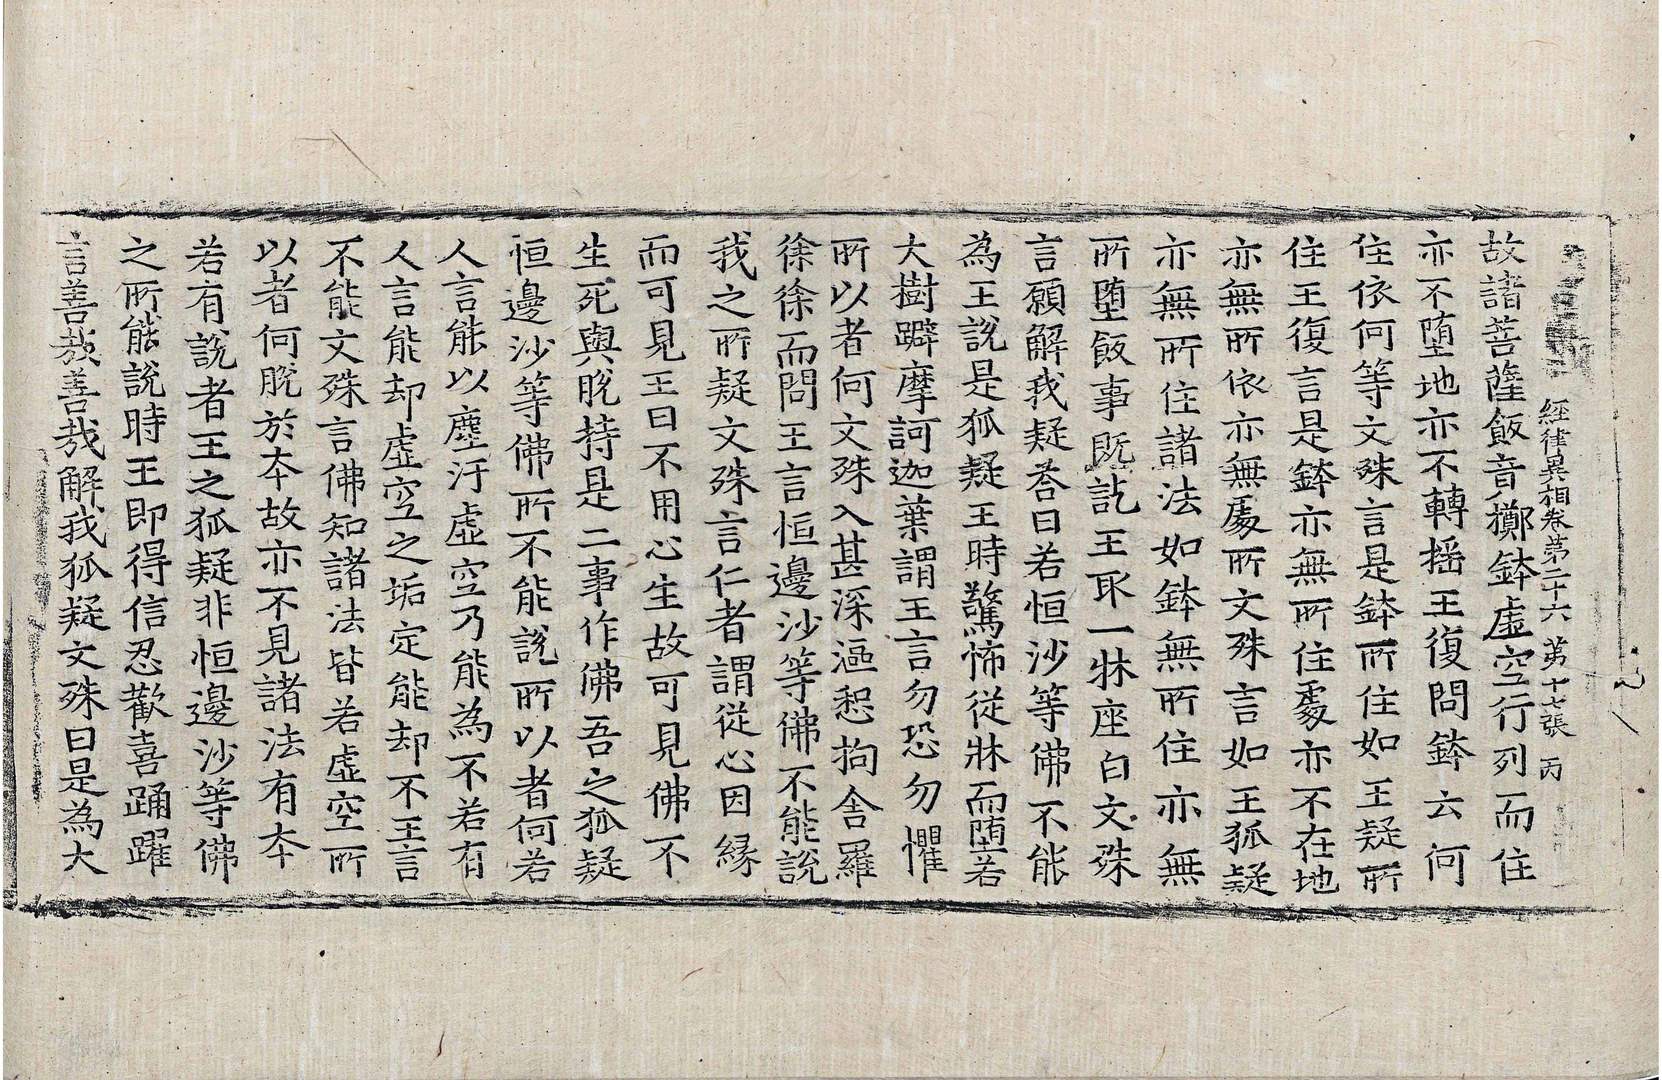 經律異相卷第二十六 第十七張 丙
故諸菩薩飯音擲鉢虛空行列而住
亦不墮地亦不轉揺王復問鉢云何
住依何等文殊言是鉢所住如王疑所
住王復言是鉢亦無所住䖏亦不在地
亦無所依亦無䖏所文殊言如王狐疑
亦無所住諸法如鉢無所住亦無
所墮飯事旣訖王取一牀座白文殊
言願解我疑荅曰若恒沙等佛不能
為王說是狐疑王時驚怖從牀而墮若
大樹躃摩訶迦葉謂王言勿恐勿懼
所以者何文殊入甚深漚恕拘舍羅
徐徐而問王言恒邊沙等佛不能說
我之所疑文殊言仁者謂從心因縁
而可見王曰不用心生故可見佛不
生死與脫持是二事作佛吾之狐疑
恒邊沙等佛所不能說所以者何若
人言能以塵汙虛空乃能為不若有
人言能却虛空之垢定能却不王言
不能文殊言佛知諸法皆若虛空所
以者何脫於本故亦不見諸法有本
若有說者王之狐疑非恒邊沙等佛
之所能說時王即得信忍歡喜踊躍
言善哉善哉解我狐疑文殊曰是為大